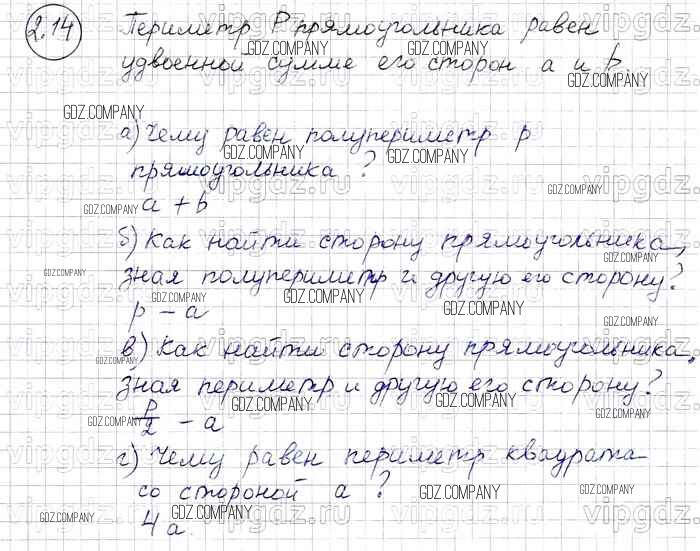 2.14 Периметр P прямоугольника равен
удвоенной сумме его сторон a и b.
а) Чему равен полупериметр p
прямоугольника?
a + b
б) Как найти сторону прямоугольника,
зная полупериметр и другую его сторону?
p - a
в) Как найти сторону прямоугольника,
зная периметр и другую его сторону?
P/2 - a
г) Чему равен периметр квадрата
со стороной a?
4a.
GDZ.COMPANY
vipgdz.ru